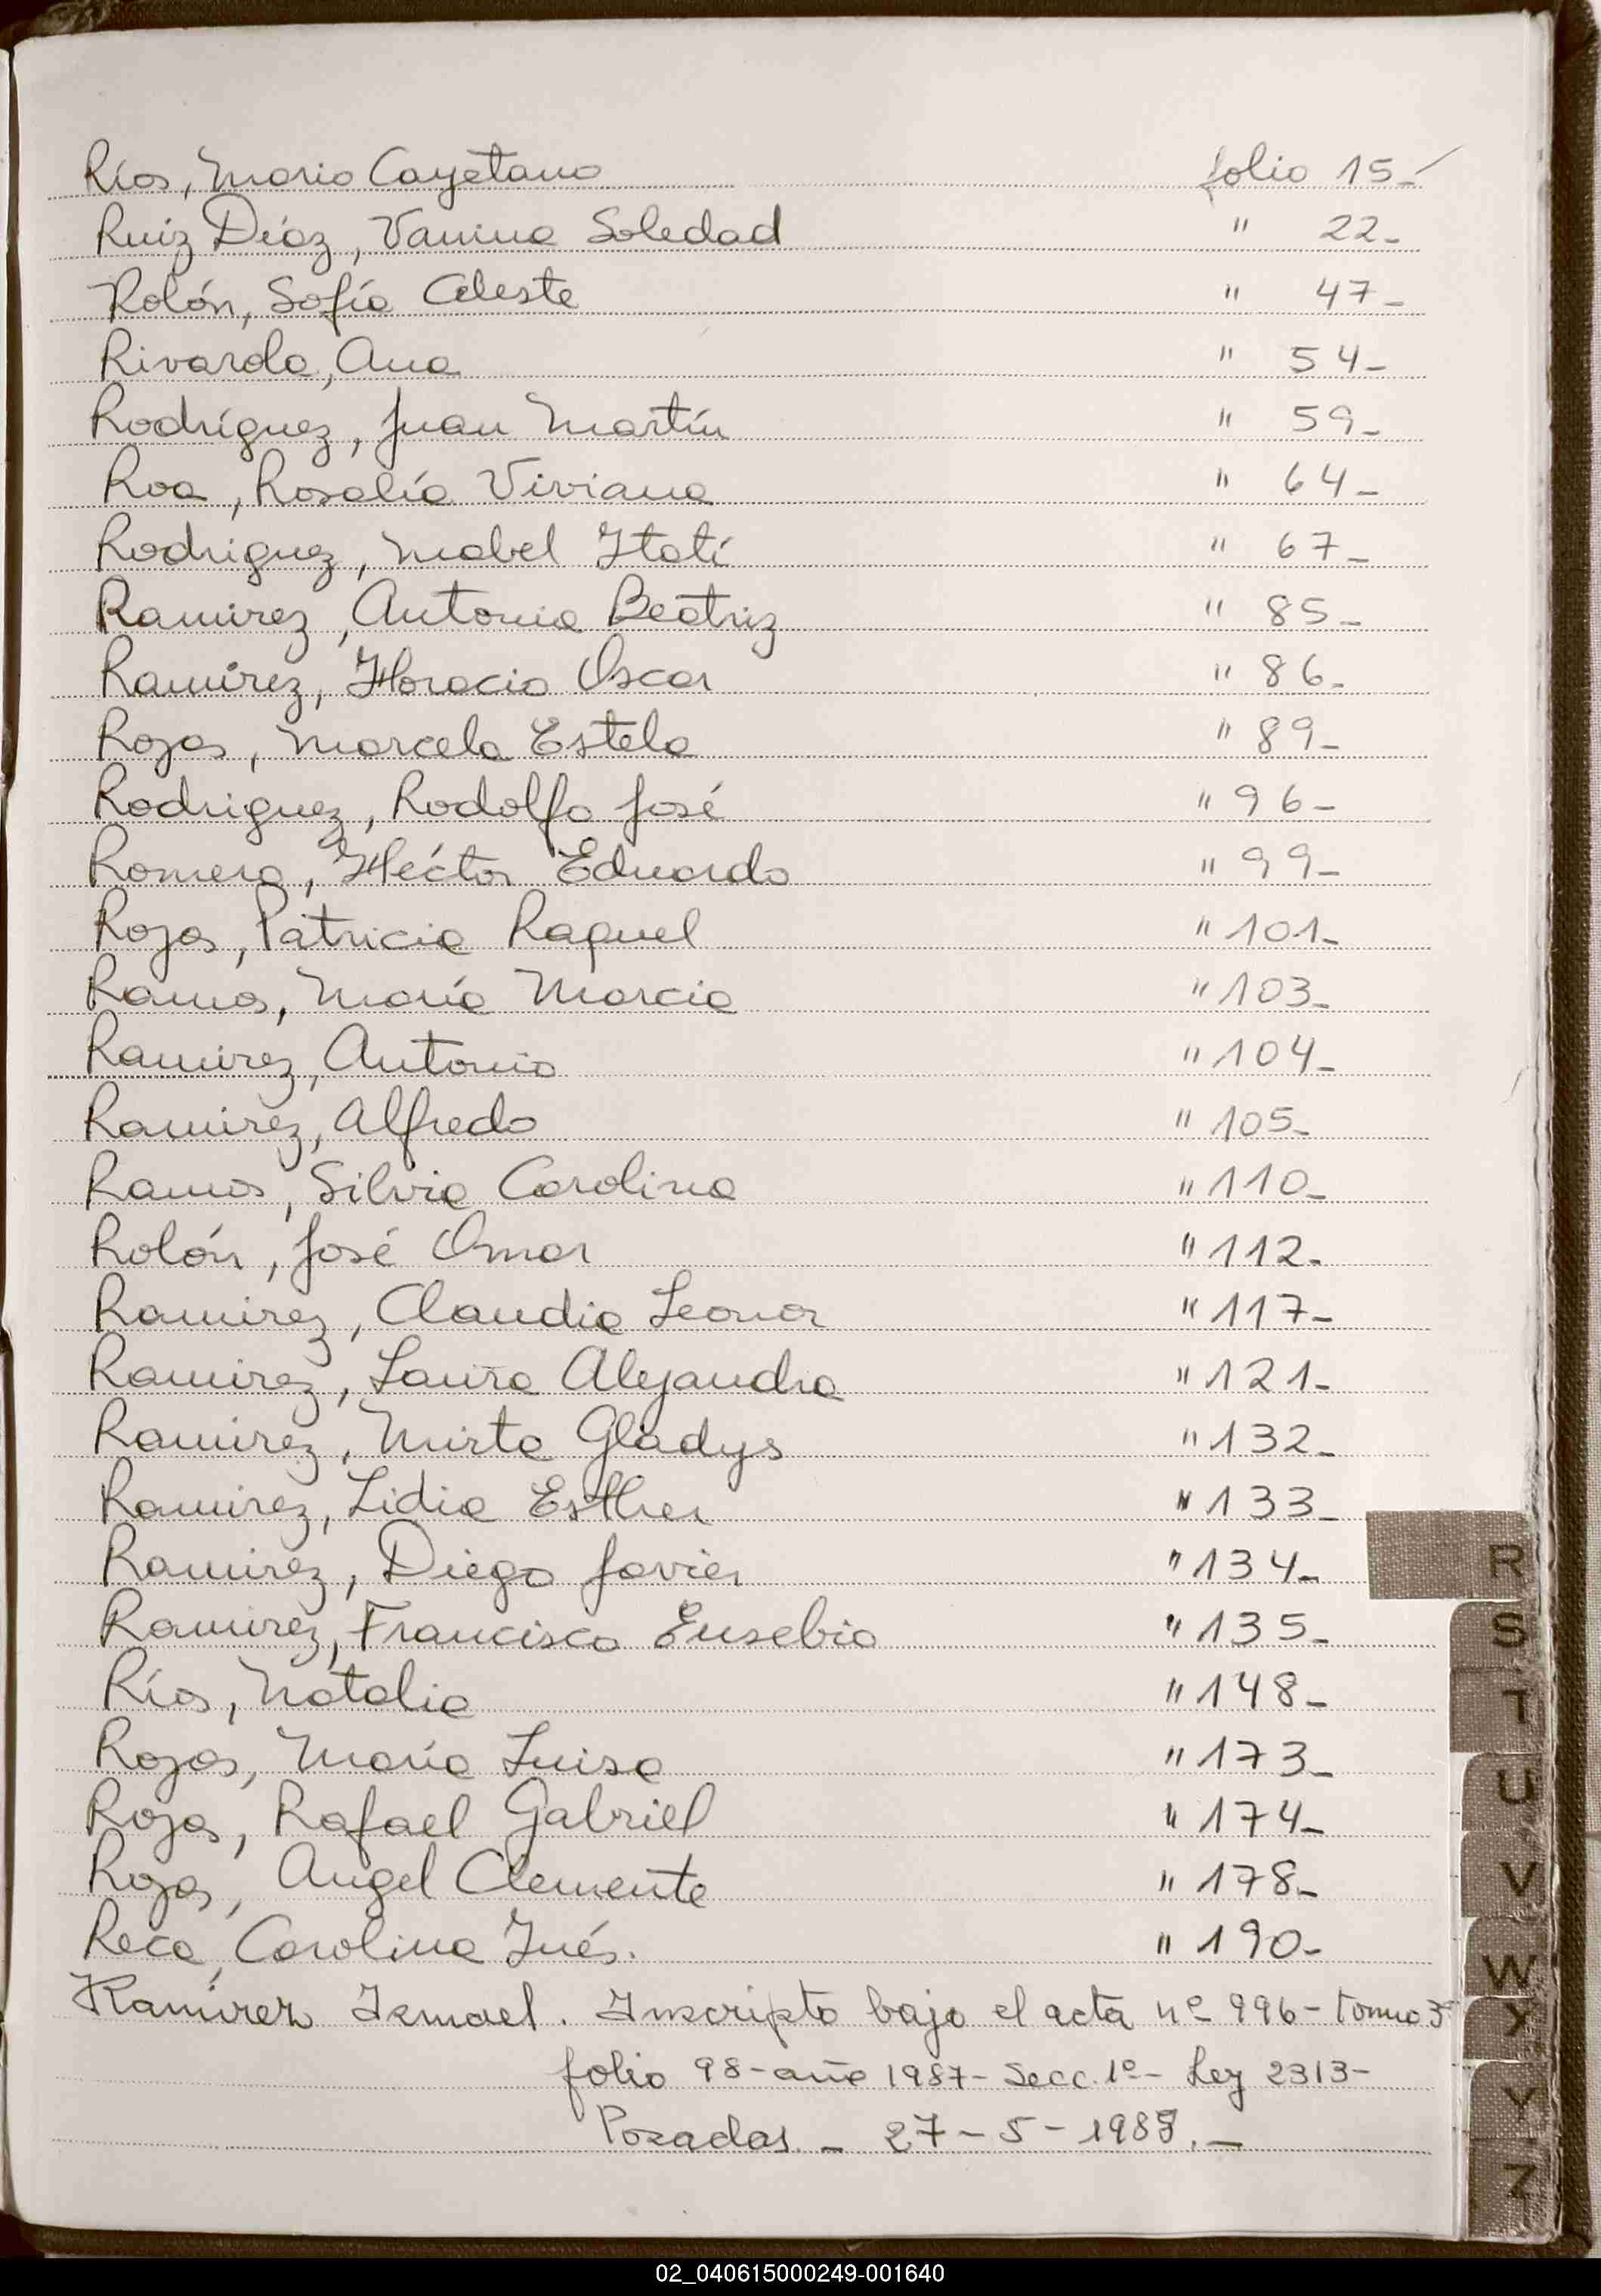 Ríos, Mario Cayetano folio 15-
Ruiz Díaz, Vanina Soledad " 22-
Rolón, Sofía Celeste " 47-
Rivarola, Ana " 54-
Rodríguez, Juan Martín " 59-
Roa, Rosalía Viviana " 64-
Rodriguez, Mabel Itatí " 67-
Ramirez, Antonia Beatriz " 85-
Ramírez, Horacio Oscar " 86-
Rojas, Marcela Estela " 89-
Rodriguez, Rodolfo José " 96-
Romero, Héctor Eduardo " 99-
Rojas, Patricia Raquel " 101-
Ramos, María Marcia " 103-
Ramirez, Antonio " 104-
Ramirez, Alfredo " 105-
Ramos, Silvia Carolina " 110-
Rolón, José Omar " 112-
Ramirez, Claudia Leonor " 117-
Ramirez, Laura Alejandra " 121-
Ramirez, Mirta Gladys " 132-
Ramirez, Lidia Esther " 133-
Ramirez, Diego Javier " 134-
Ramirez, Francisco Eusebio " 135-
Ríos, Natalia " 148-
Rojas, María Luisa " 173-
Rojas, Rafael Gabriel " 174-
Rojas, Angel Clemente " 178-
Reca, Carolina Inés. " 190-
Ramírez Ismael. Inscripto bajo el acta nº 996- tomo 3º
folio 98-año 1987- Secc. 1º- Ley 2313-
Posadas - 27-5-198 .-
R
S
T
U
V
W
X
Y
Z
02_040615000249-001640